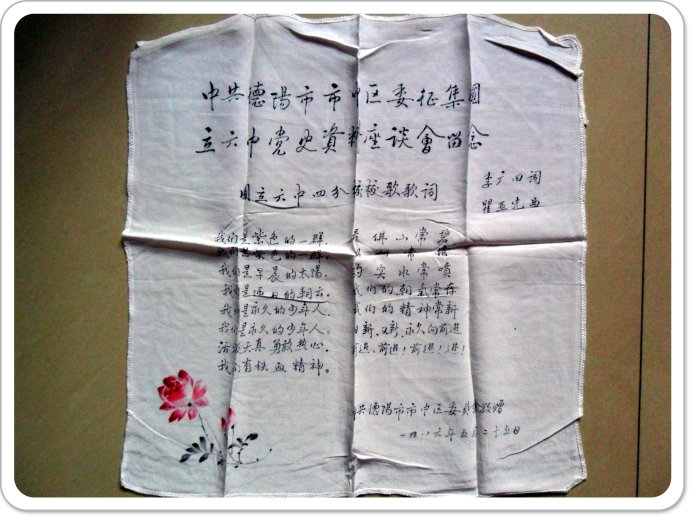 中共德陽市市中区委征集國
立六中党史資料座谈會留念
國立六中四分校校歌歌词
李广田词
瞿亚先曲
我们是紫色的一群，
我们是早晨的太陽，
我们是 日的朝云。
我们是永久的少年人，
我们是永久的少年人。
活潑天真勇敢热心，
我们有铁血精神。
佛山常碧
的突水常噴
我们的朝氣常存
我们的精神常新
日新、又新，永久向前進
前進、前進！前進！進！
共德陽市市中区委員会 贈
一九八六年五月二十五日